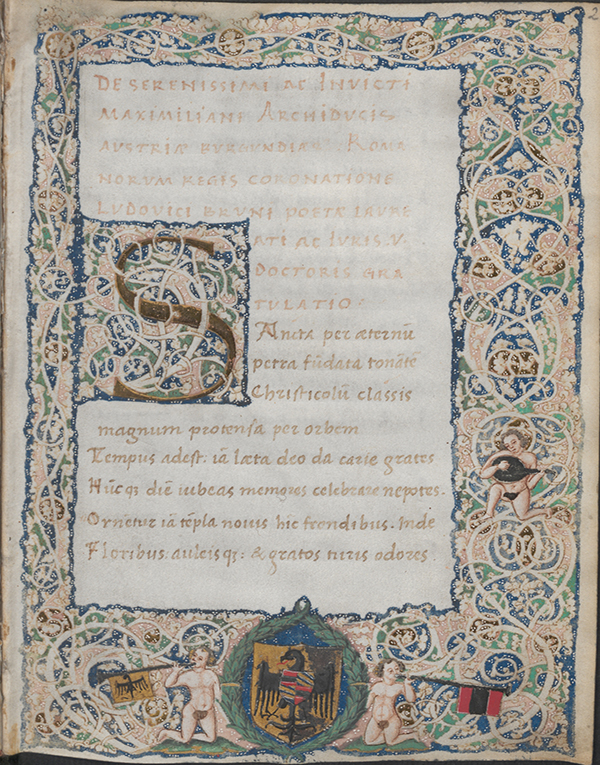 DE SERENISSIMI AC INVICTI
MAXIMILIANI ARCHIDVCIS
AVSTRIÆ BVRGVNDIAE ROMA
NORVM REGIS CORONATIONE
LVDOVICI BRVNI POETÆ LAVRE
ATI AC IVRIS V.
DOCTORIS GRA
TVLATIO:
SAncta per æternũ
petra fũdata tonãtẽ
Christicolũ classis
magnum protensa per orbem
Tempus adest: iã læta deo da carie grates
Hũcq; diẽ iubeas memores celebrare nepotes.
Ornetur iã tẽpla nouis hĩc frondibus. Inde
Floribus. auleisq;: & gratos turis odores
2